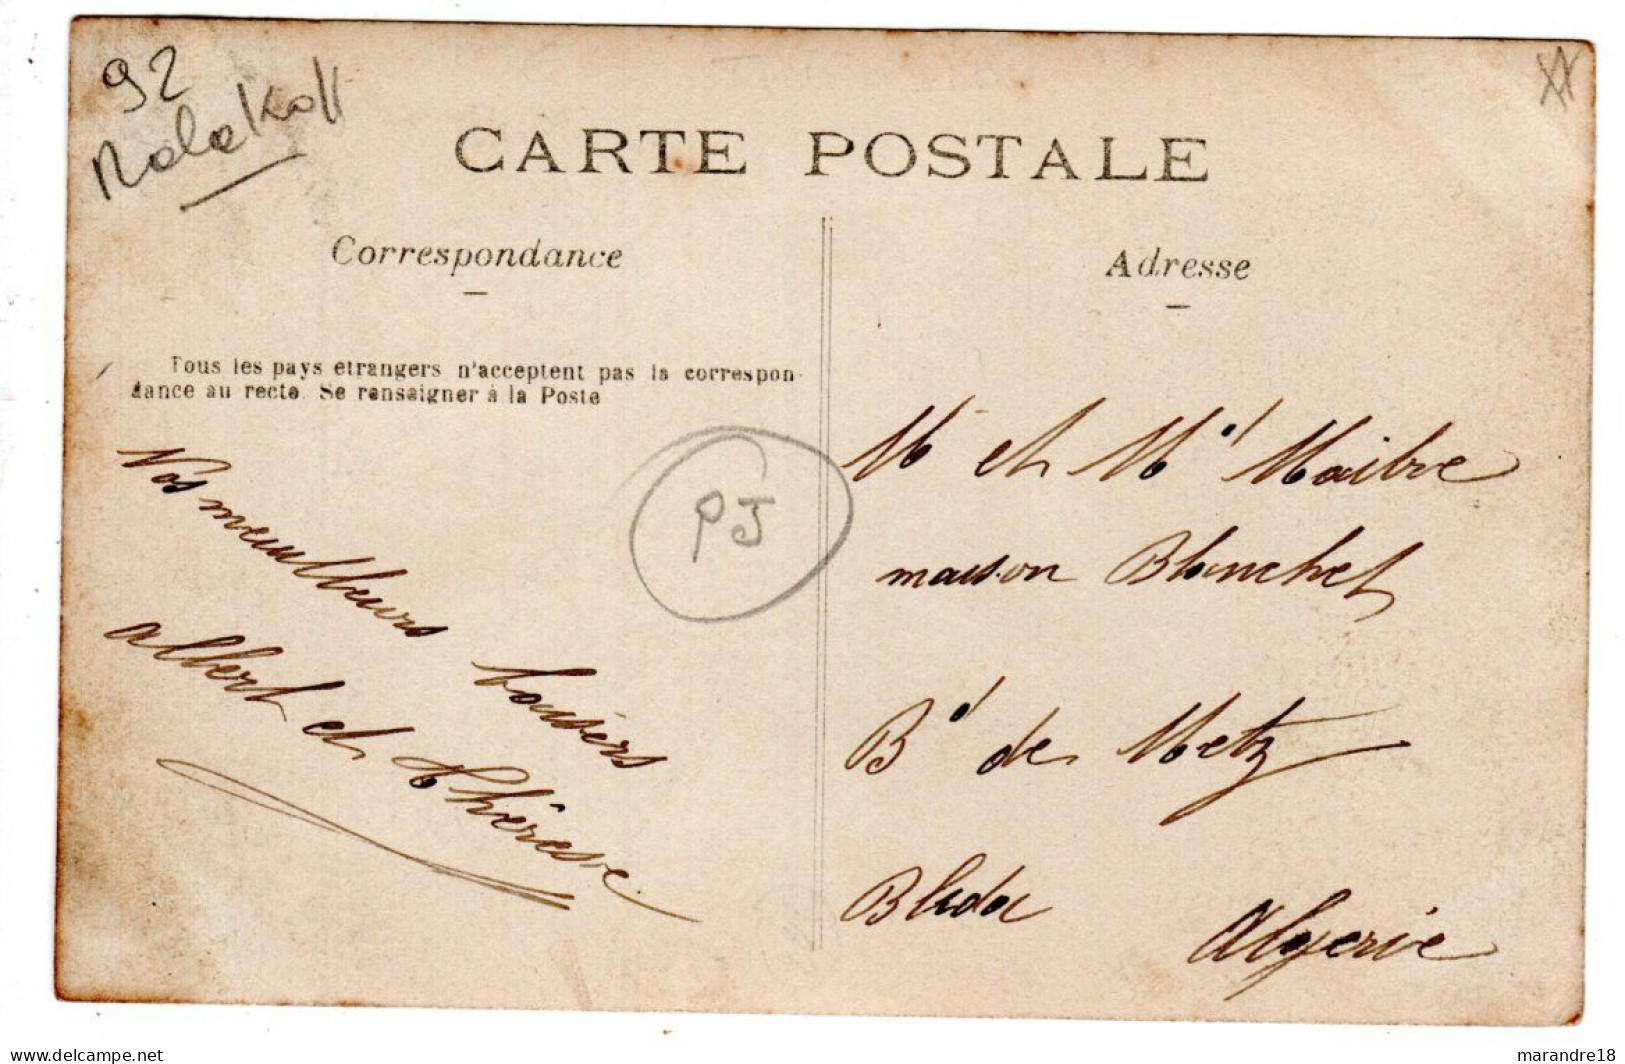 92
Malakoff
CARTE POSTALE
Correspondance
Tous les pays etrangers n'acceptent pas la correspon-
dance au recto. Se renseigner à la Poste
Nos meuilleurs baisérs
Albert et Thérèse
PJ
Adresse
M et Md Maitre
maison Blanchet
Bd de Metz
Blida
Algerie
delcampe.net
marandre18